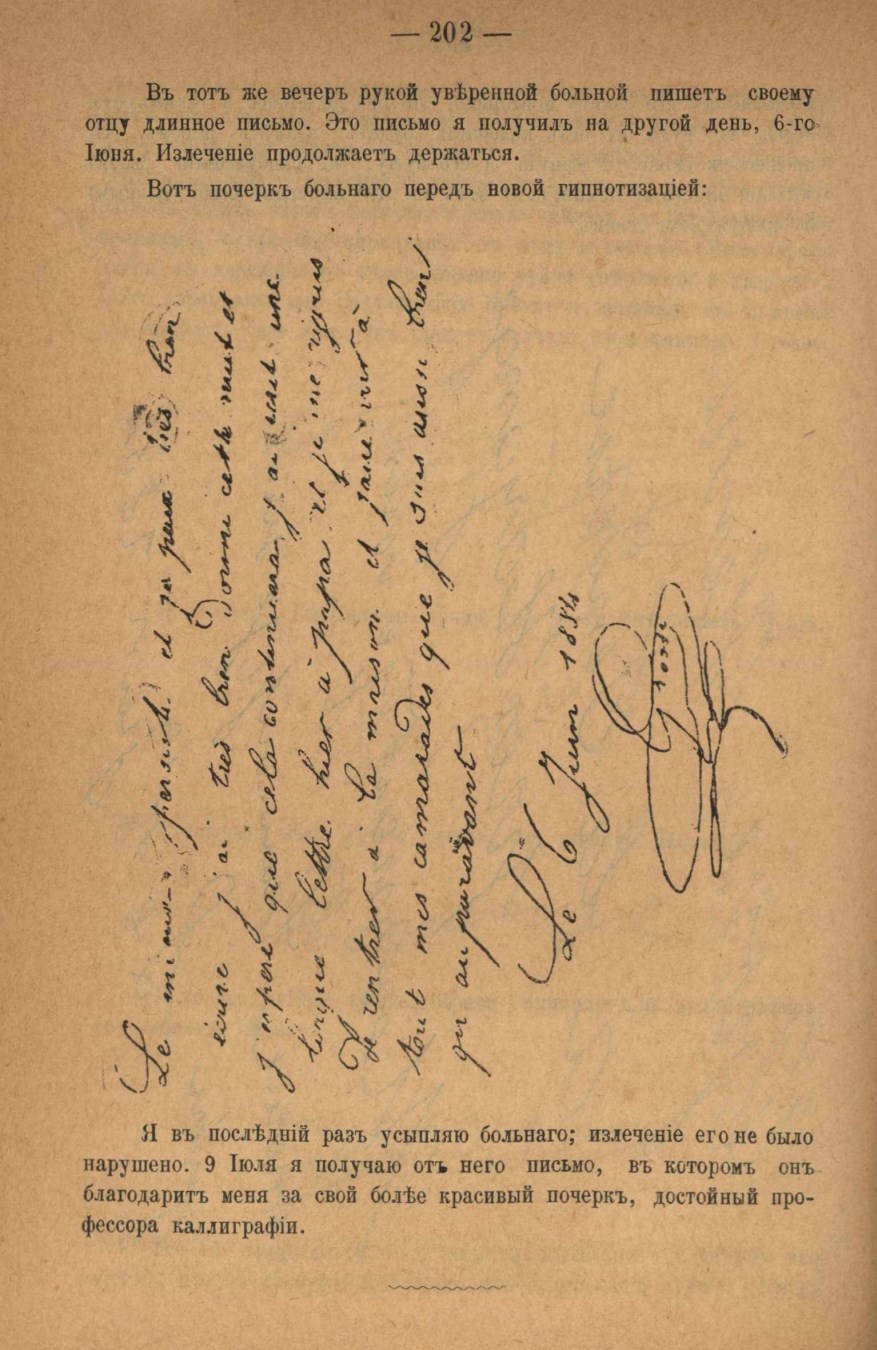 — 202 —
Въ тотъ же вечеръ рукой увѣренной больной пишетъ своему
отцу длинное письмо. Это письмо я получилъ на другой день, 6-го
Іюня. Излеченіе продолжаетъ держаться.
Вотъ почеркъ больнаго передъ новой гипнотизаціей:
Le mieux persiste et je peux très bien
écrire j'ai très bien dormi cette nuit et
j'espere que cela continuera j'ai écrit une
longue lettre hier à papa et je me
rentrer à la maison et faire voir à
tout mes camarades que je suis aussi bien
qu'auparavant
Le 6 Juin 1884
Я въ послѣдній разъ усыпляю больнаго; излеченіе его не было
нарушено. 9 Іюля я получаю отъ него письмо, въ которомъ онъ
благодаритъ меня за свой болѣе красивый почеркъ, достойный про-
фессора каллиграфіи.